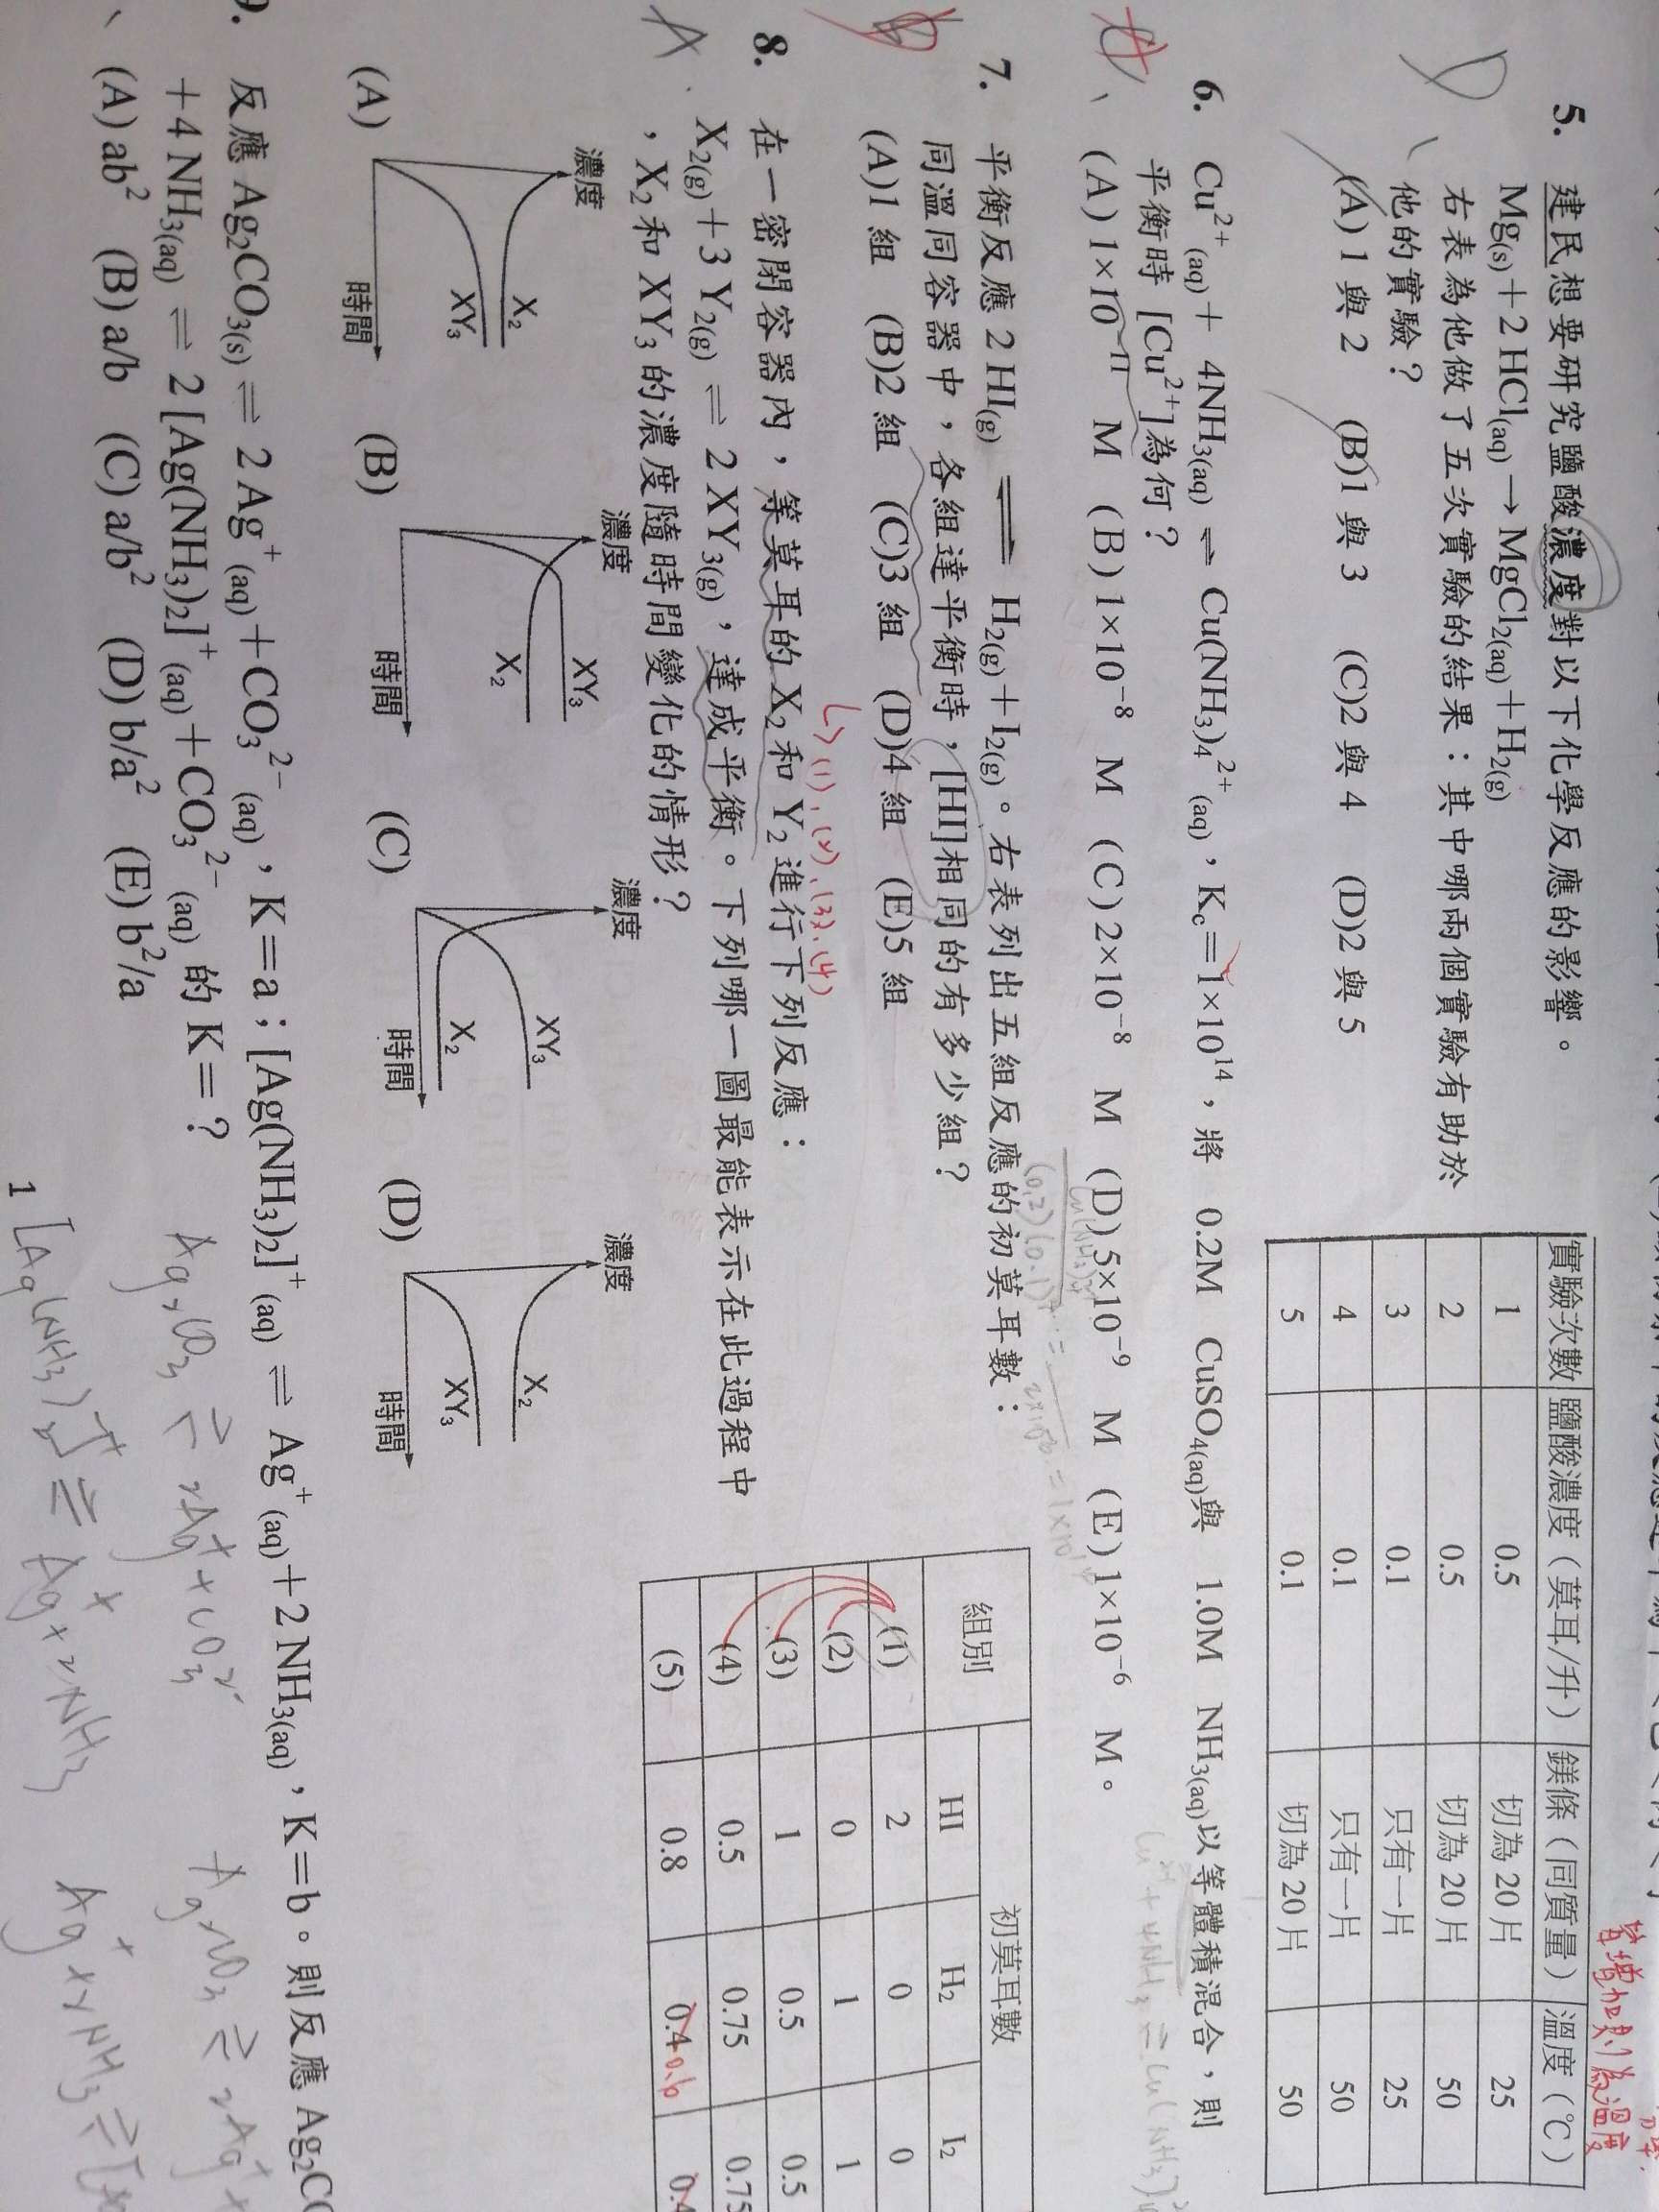 5. 建民想要研究鹽酸濃度對以下化學反應的影響。
Mg(s)+2 HCl(aq)→MgCl2(aq)+H2(g)
右表為他做了五次實驗的結果：其中哪兩個實驗有助於
他的實驗？
(A) 1 與 2 (B)1 與 3 (C)2 與 4 (D)2 與 5
實驗次數 鹽酸濃度（莫耳/升） 鎂條（同質量） 溫度（℃）
1 0.5 切為 20 片 25
2 0.5 切為 20 片 50
3 0.1 只有一片 25
4 0.1 只有一片 50
5 0.1 切為 20 片 50
6. Cu²⁺(aq)+ 4NH3(aq) ⇌ Cu(NH3)4²⁺(aq)，Kc＝1×10¹⁴，將 0.2M CuSO4(aq)與 1.0M NH3(aq)以等體積混合，則
平衡時 [Cu²⁺]為何？
(A) 1×10⁻¹¹ M (B) 1×10⁻⁸ M (C) 2×10⁻⁸ M (D) 5×10⁻⁹ M (E) 1×10⁻⁶ M。
7. 平衡反應 2 HI(g) ⇌ H2(g)＋I2(g)。右表列出五組反應的初莫耳數：
同溫同容器中，各組達平衡時，[HI]相同的有多少組？
(A)1 組 (B)2 組 (C)3 組 (D)4 組 (E)5 組
↳ (1)、(2)、(3)、(4)
組別 初莫耳數
HI H2 I2
(1) 2 0 0
(2) 0 1 1
(3) 1 0.5 0.5
(4) 0.5 0.75 0.75
(5) 0.8 0.4 0.6 0.4
8. 在一密閉容器內，等莫耳的 X2和 Y2 進行下列反應：
X2(g)＋3 Y2(g) ⇌ 2 XY3(g)，達成平衡。下列哪一圖最能表示在此過程中
，X2 和 XY3 的濃度隨時間變化的情形？
A
(A) 濃度 X2 XY3 時間
(B) 濃度 XY3 X2 時間
(C) 濃度 XY3 X2 時間
(D) 濃度 X2 XY3 時間
9. 反應 Ag2CO3(s) ⇌ 2 Ag⁺(aq)＋CO3²⁻(aq)，K＝a；[Ag(NH3)2]⁺(aq) ⇌ Ag⁺(aq)＋2 NH3(aq)，K＝b。則反應 Ag2CO
＋4 NH3(aq) ⇌ 2 [Ag(NH3)2]⁺(aq)＋CO3²⁻(aq) 的 K＝？
(A) ab² (B) a/b (C) a/b² (D) b/a² (E) b²/a
Ag2CO3 ⇌ 2Ag⁺ + CO3²⁻
[Ag(NH3)2]⁺ ⇌ Ag⁺ + 2NH3
1